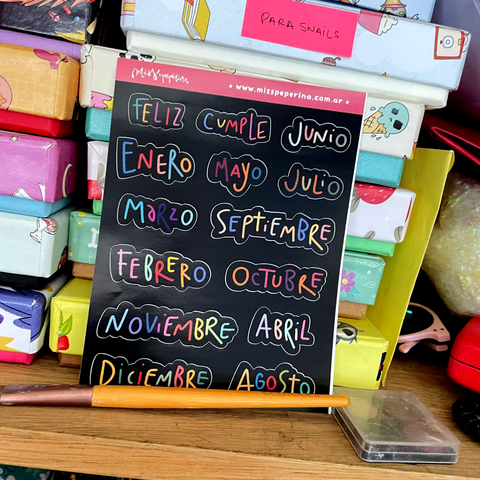 PARA SNAILS
miss peperina
• www.misspeperina.com.ar •
FELIZ CUMPLE JUNIO
ENERO MAYO JULIO
MARZO SEPTIEMBRE
FEBRERO OCTUBRE
NOVIEMBRE ABRIL
DICIEMBRE AGOSTO